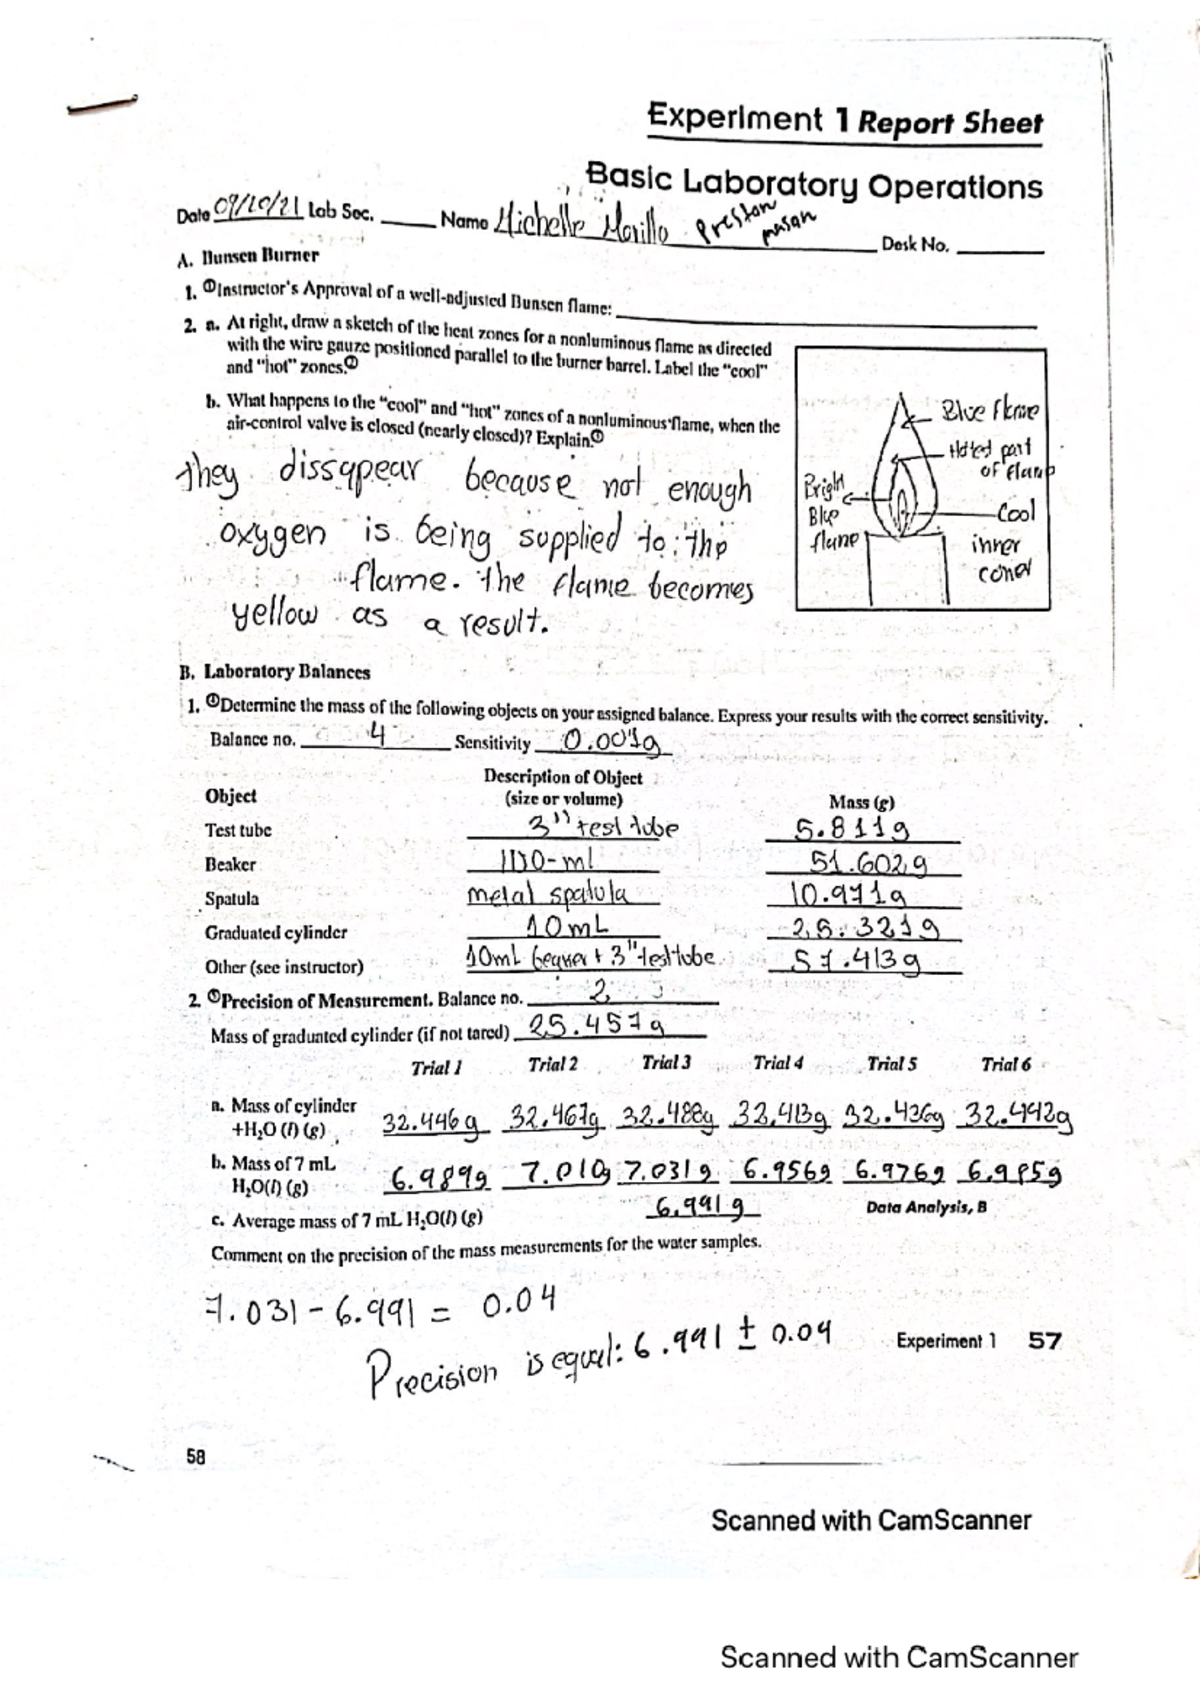 Experiment 1 Report Sheet
Basic Laboratory Operations
Date 09/10/21 Lab Sec. ____ Name Michelle Morillo Preston mason Desk No. ____
A. Bunsen Burner
1. ①Instructor's Approval of a well-adjusted Bunsen flame: ____
2. a. At right, draw a sketch of the heat zones for a nonluminous flame as directed
with the wire gauze positioned parallel to the burner barrel. Label the "cool"
and "hot" zones.②
b. What happens to the "cool" and "hot" zones of a nonluminous flame, when the
air-control valve is closed (nearly closed)? Explain.③
They dissapear because not enough
oxygen is being supplied to the
flame. The flame becomes
yellow as a result.
Blue flame
Hotted part
of flame
Bright
Blue
flame
Cool
inner
cone
B. Laboratory Balances
1. ④Determine the mass of the following objects on your assigned balance. Express your results with the correct sensitivity.
Balance no. 4 Sensitivity 0.001g
Description of Object
Object (size or volume) Mass (g)
Test tube 3" test tube 5.811g
Beaker 100-ml 51.602g
Spatula metal spatula 10.971g
Graduated cylinder 10mL 25.321g
Other (see instructor) 10mL beaker + 3" test tube 57.413g
2. ⑤Precision of Measurement. Balance no. 2
Mass of graduated cylinder (if not tared) 25.457g
Trial 1 Trial 2 Trial 3 Trial 4 Trial 5 Trial 6
a. Mass of cylinder
+H₂O (l) (g) 32.446g 32.467g 32.488g 32.413g 32.436g 32.442g
b. Mass of 7 mL
H₂O(l) (g) 6.989g 7.010g 7.031g 6.956g 6.976g 6.985g
c. Average mass of 7 mL H₂O(l) (g) 6.991g Data Analysis, B
Comment on the precision of the mass measurements for the water samples.
7.031 - 6.991 = 0.04
Precision is equal: 6.991 ± 0.04
Experiment 1 57
58
Scanned with CamScanner
Scanned with CamScanner